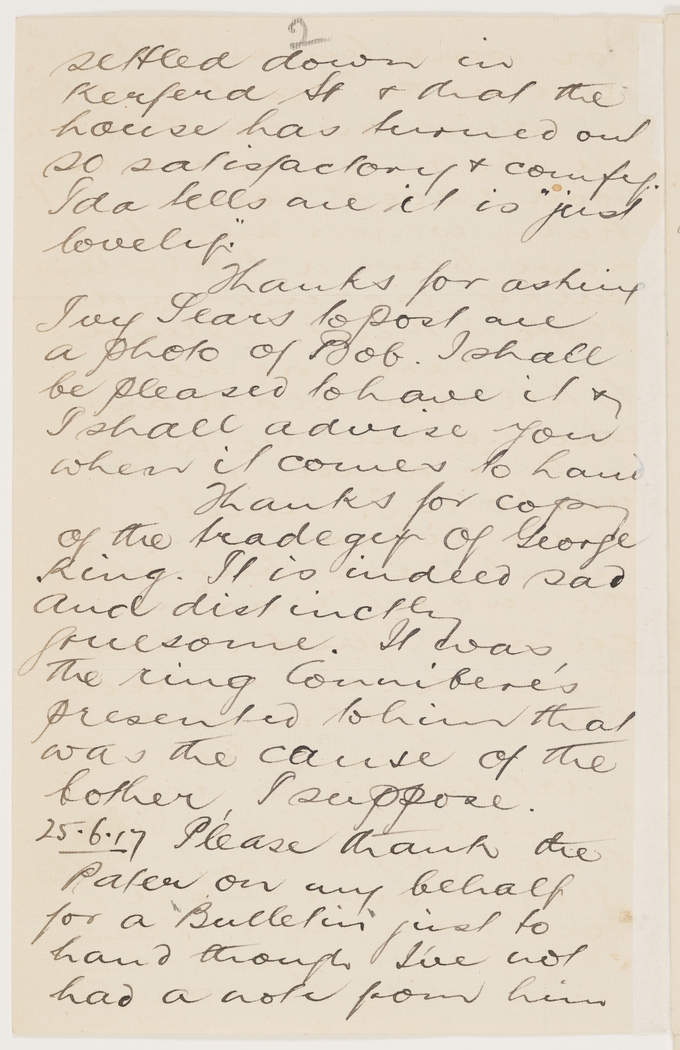 2
settled down in
Kerferd St & that the
house has turned out
so satisfactory & comfy.
Ida tells me it is "just
lovely."
Thanks for asking
Ivy Sears to post me
a photo of Bob. I shall
be pleased to have it &
I shall advise you
when it comes to hand
Thanks for copy
of the tradegy of George
King. It is indeed sad
and distinctly
gruesome. It was
the ring Connibere's
presented to him that
was the cause of the
bother, I suppose.
25.6.17 Please thank the
Pater on my behalf
for a "Bulletin" just to
hand though I've not
had a note from him